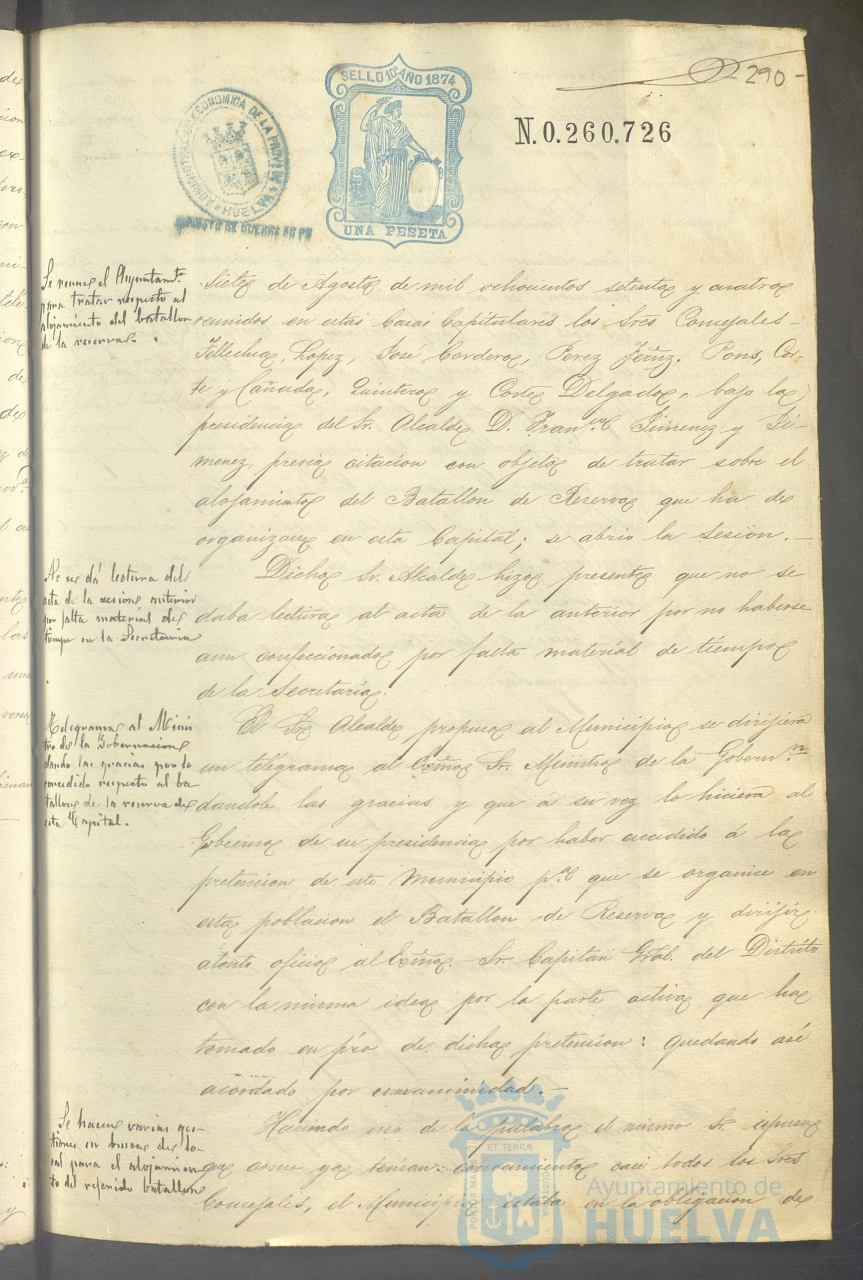 290-
SELLO 10º AÑO 1874
UNA PESETA
N.0.260.726
ADMINISTRACION ECONOMICA DE LA PROVINCIA
HUELVA
IMPUESTO DE GUERRA 50
Se reune el Ayuntamto
para tratar respecto al
alojamiento del batallon
de la reserva.
Siete de Agosto de mil ochocientos setenta y cuatro
reunidos en estas Casas Capitulares los Sres Concejales
Tellechea, Lopez, José Cordero, Perez Pons, Cor-
te y Cañada, Quintero y Corte Delgado, bajo la
presidencia del Sr. Alcalde D. Franco Jimenez y Ji-
menez, previa citacion con objeto de tratar sobre el
alojamiento del Batallon de Reserva que ha de
organizarse en esta Capital; se abrio la sesion.
No se dá lectura del
acta de la sesion anterior
por falta material de
tiempo en la Secretaria
Dicho Sr. Alcalde hizo presente que no se
daba lectura al acta de la anterior por no haberse
aun confeccionado por falta material de tiempo
de la Secretaría.
Telegrama al Minis
tro de la Gobernacion
dando las gracias por lo
concedido respecto al ba-
tallon de la reserva de
esta Capital.
El Sor Alcalde propuso al Municipio se dirijiera
un telégrama al Exmo Sr. Ministro de la Gobernn
dandole las gracias y que á su vez lo hiciera al
Gobierno de su presidencia por haber acudido á la
pretension de este Municipio pa que se organice en
esta poblacion el Batallon de Reserva y dirijir
atento oficio al Exmo. Sr. Capitan Gral. del Distrito
con la misma idea por la parte activa que ha
tomado en pró de dicha pretension: quedando asi
acordado por unanimidad.-
Se hacen varias ges-
tiones en busca de lo-
cal para el alojamien
to del referido batallon
Haciendo uso de la palabra el mismo Sr. espuso
que como ya tenian conocimiento casi todos los Sres
Concejales, el Municipio estaba en la obligacion de
PORTUS MARIS ET TERRÆ CUSTODIA
Ayuntamiento de
HUELVA